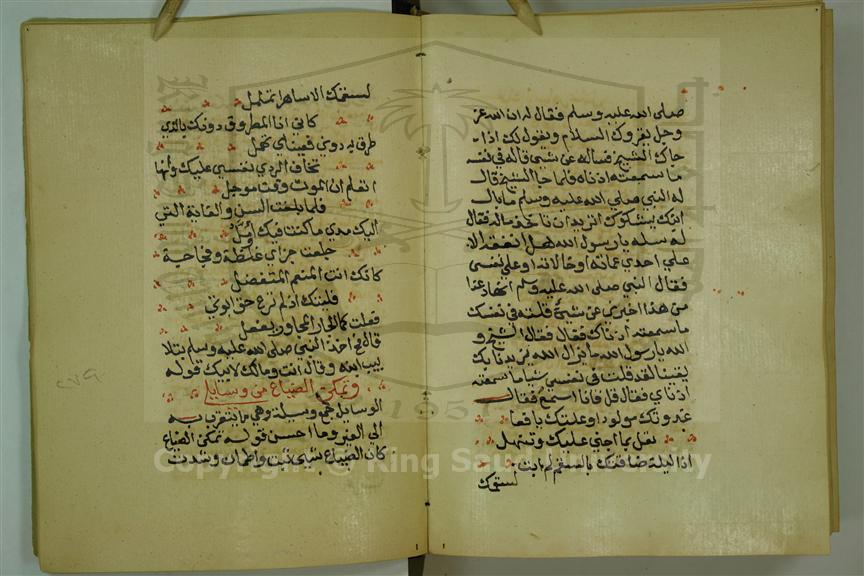 صلى الله عليه وسلم فقال له ان الله عز
وجل يقروك السلام ويقول لك اذا
جاك الشيخ فساله عن شي قاله في نفسه
ما سمعته اذناه فلما جا الشيخ قال
له النبي صلى الله عليه وسلم ما بال
ابنك يشكوك اتريد ان تاخذ ماله فقال
له سله يا رسول الله هل انفقه الا
على احدي عماته او خالاته او على نفسي
فقال النبي صلى الله عليه وسلم
من هذا اخبرني عن شي قلته في نفسك
ما سمعته اذناك فقال فقال الشيخ و
الله يا رسول الله ما يزال الله يزيدنا بك
يقينا لقد قلت في نفسي شيا ما سمعته
اذناي فقال قل فانا اسمع فقال
غدوتك مولودا وعلتك يافعا
تعل بما اجني عليك وتنهل
اذا ليلة ضافتك بالسقم لم ابت
لسقمك
لسقمك الا ساهرا تململ
كاني انا المطروق دونك بالذي
طرقت به دوني فعيناي تهمل
تخاف الردي نفسي عليك وانها
لتعلم ان الموت وقت موجل
فلما بلغت السن والغاية التي
اليك مدي ما كنت فيك اومل
جعلت جزاي غلظة وفجاجة
كانك انت المنعم المتفضل
فليتك اذ لم ترع حق ابوتي
فعلت كما الجار المجاور يفعل
قال فح اخذ النبي صلى الله عليه وسلم بتلا
بيب ابنه وقال انت ومالك لابيك قوله
وتمكن الضياع من وسايلي
الوسايل جمع وسيلة وهي ما يتقرب به
الى الغير وما احسن قوله تمكن الضياع
كان الضياع شي ثبت واطمان وشدت
٢٧٩
1957
Copyright © King Saud University